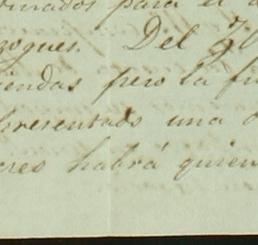 para el
zogues. Del
iendas pero la
presentado una
eres habrá quien